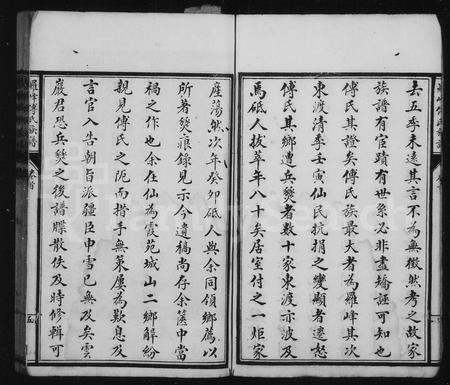 去五季未遠其言不為無徵然考之故家
族譜有官蹟有世系必非盡矯誣可知也
傅氏其證矣傅氏族最大者為羅峰其次
東渡清季壬寅仙民抗捐之變顯者遠愬
傅氏其鄉遭兵燹者數十家東渡亦波及
焉砥人拔萃年八十矣居室付之一炬家
產蕩然次年癸卯砥人與余同領鄉薦以
所著焚痕錄見示今遺稿尚存余篋中當
禍之作也余在仙為霞苑城山二鄉解紛
親見傅氏之阨而措手無策屢為歎息及
言官入告朝旨派疆臣申雪已無及矣雲
巖君恐兵燹之後譜牒散佚及時修輯可
羅峰傅氏族譜
卷首
五
FamilySearch